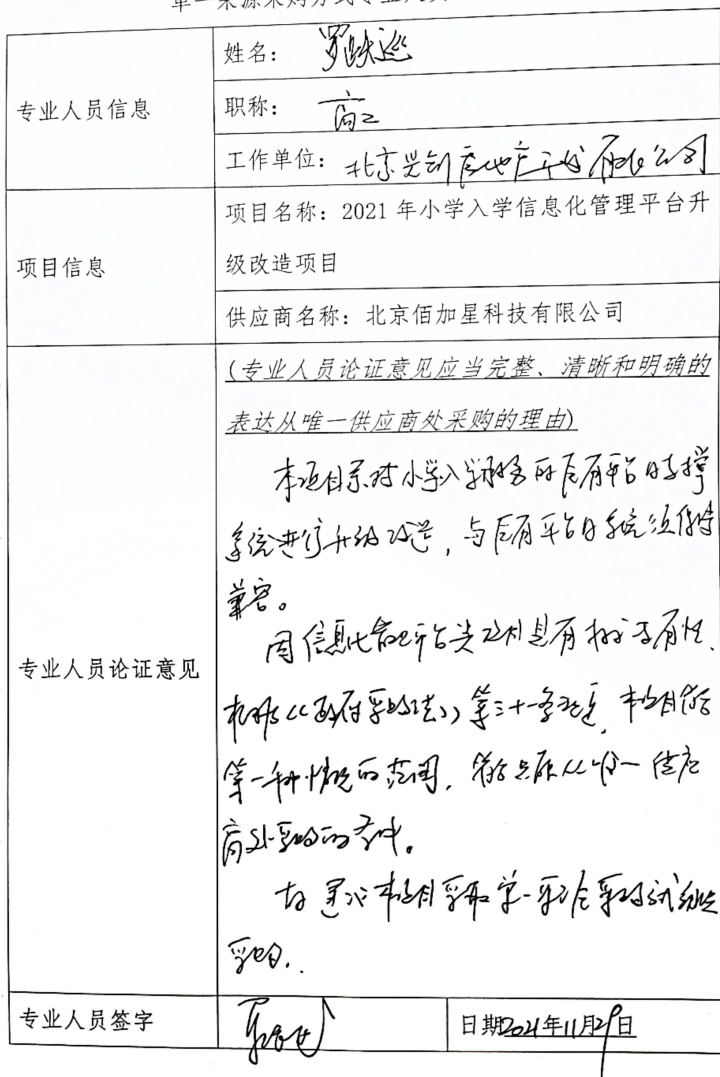 单一来源采购方式专业人员
专业人员信息
姓名：罗
职称：高工
工作单位：北京兴创房地产开发有限公司
项目信息
项目名称：2021年小学入学信息化管理平台升
级改造项目
供应商名称：北京佰加星科技有限公司
专业人员论证意见
(专业人员论证意见应当完整、清晰和明确的
表达从唯一供应商处采购的理由)
本项目系对小学入学服务的原有平台的支撑
系统进行升级改造，与原有平台的系统须保持
兼容。
因信息化管理平台类项目具有技术专有性，
根据《政府采购法》第三十一条规定，本项目符合
第一种情况的范围，符合只能从唯一供应
商处采购的条件。
故建议本项目采取单一来源采购方式组织
采购。
专业人员签字
罗
日期2021年11月29日